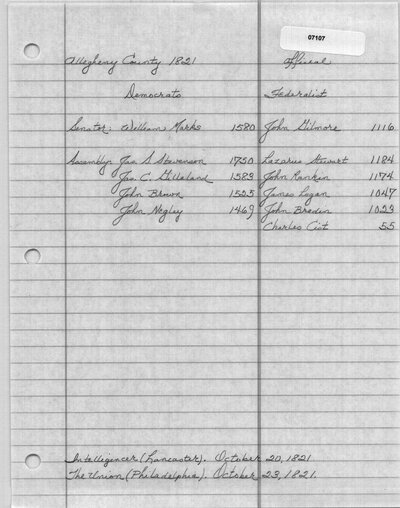 07107
Allegheny County 1821 Official
Democrats Federalist
Senator: William Marks 1580 John Gilmore 1116
Assembly: Jas S Stevenson 1750 Lazarus Stewart 1184
Jas. C. Gilleland 1583 John Rankin 1174
John Brown 1525 James Logan 1047
John Negley 1469 John Braden 1023
Charles Cist 55
Intelligencer (Lancaster). October 20, 1821
The Union (Philadelphia). October 23, 1821.